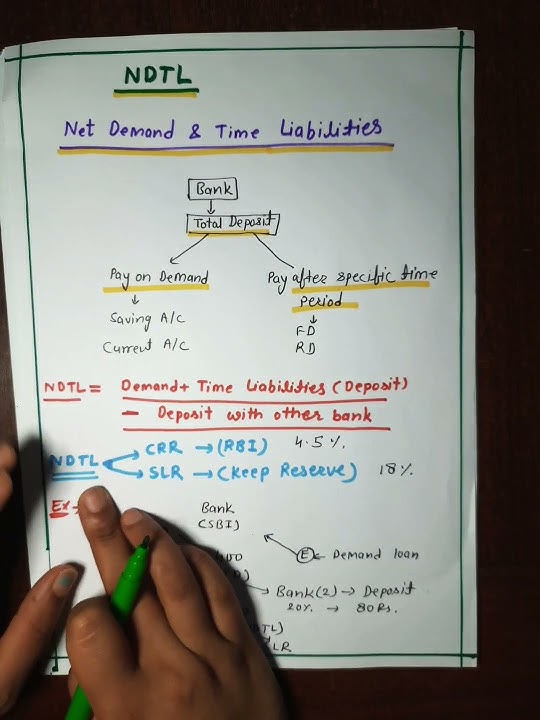 NDTL
Net Demand & Time Liabilities
Bank
Total Deposit
Pay on Demand
Pay after specific time
period
Saving A/C
FD
Current A/C
RD
NDTL = Demand + Time Liabilities (Deposit)
- Deposit with other bank
NDTL
CRR → (RBI) 4.5 %.
SLR → (Keep Reserve) 18 %.
Ex →
Bank
(SBI)
E ← Demand loan
Bank (2) → Deposit
20%. → 80 Rs.